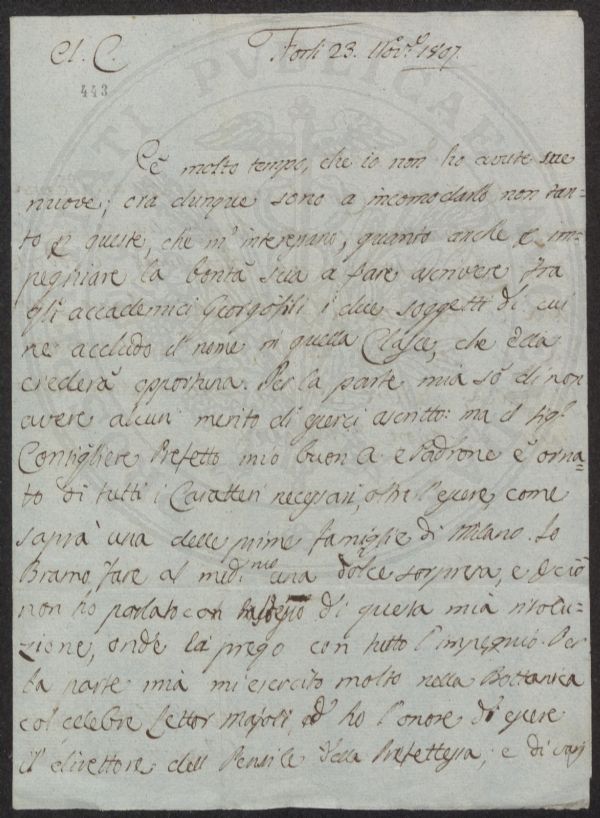 Cl. C.
Forlì 23. Nov.e 1807.
443
È molto tempo, che io non ho avute sue
nuove; ora dunque sono a incomodarlo non tan=
to p queste, che m' interessano, quanto anche p im=
peghiare la bontà sua a fare ascrivere fra
gli accademici Georgofili i due soggetti di cui
ne accludo il nome in quella Classe, che ella
crederà opportuna. Per la parte mia so di non
avere alcun merito di esserci ascritto: ma il Sig.r
Consigliere Prefetto mio buon A. e Padrone è orna=
to di tutti i Caratteri necessari, oltre l'essere, come
saprà una delle prime famiglie di Milano. Io
Bramo fare al med.mo una dolce sorpresa, e p ciò
non ho parlato con di questa mia risolu=
zione, onde la prego con tutto l'impegnio. Per
la parte mia mi esercito molto nella Bottanica
col celebre Lettor Majoli, ed ho l'onore di essere
il direttore dell Pensile della Prefettessa; e di varj